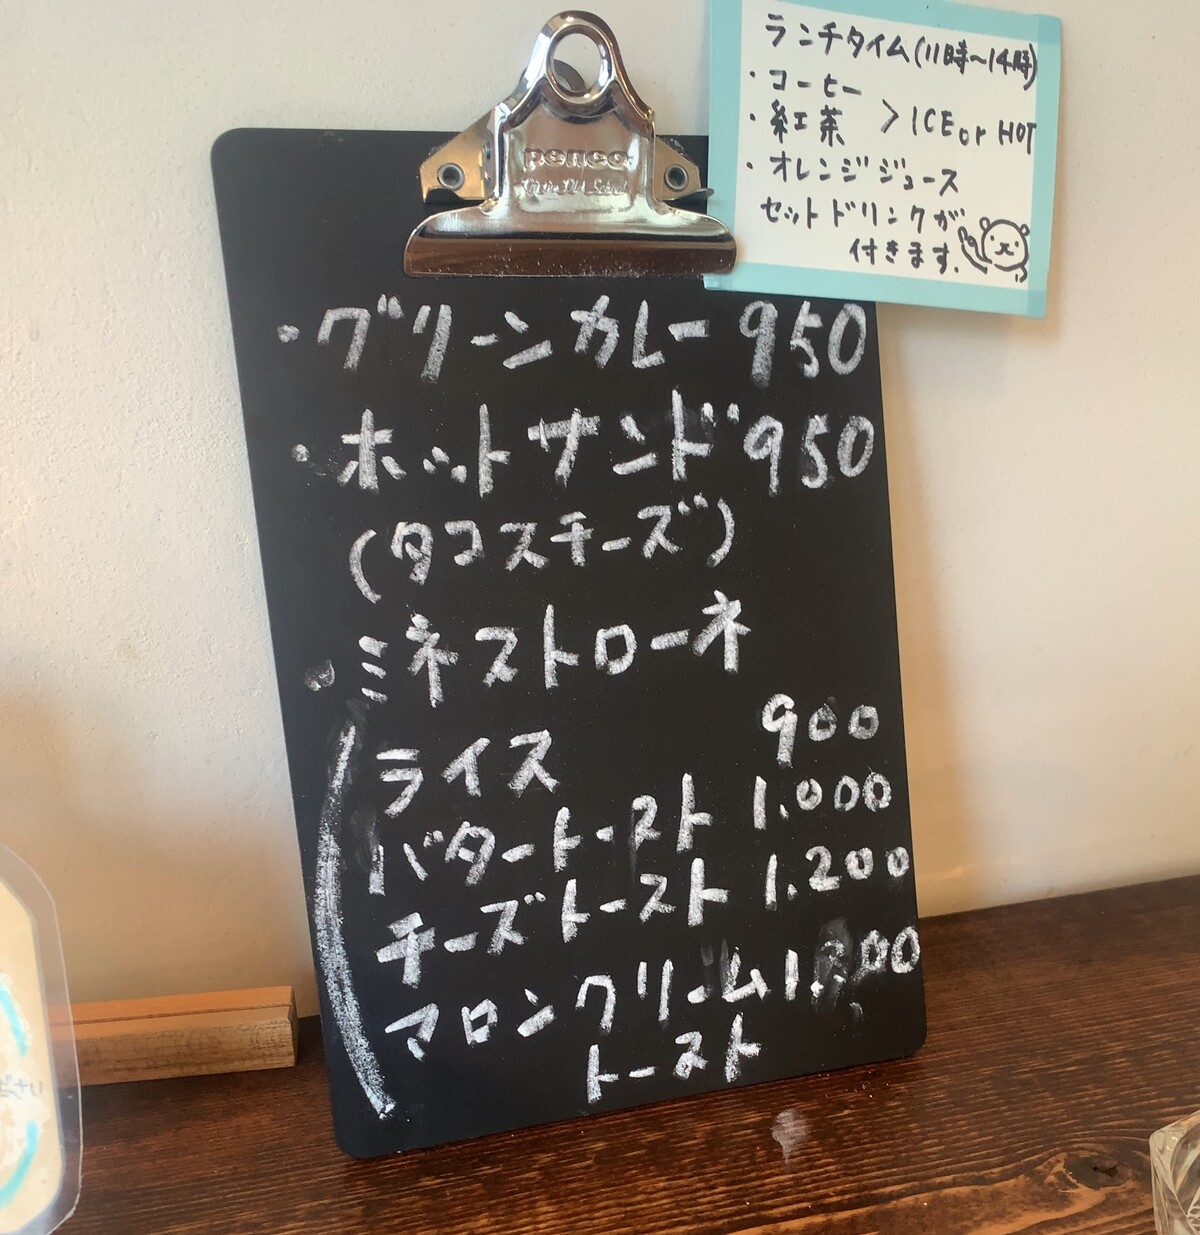 ランチタイム(11時~14時)
・コーヒー
・紅茶 > ICE or HOT
・オレンジジュース
セットドリンクが
付きます.
penco
・グリーンカレー 950
・ホットサンド 950
(タコスチーズ)
・ミネストローネ
ライス 900
バタートースト 1.000
チーズトースト 1.200
マロンクリーム
トースト